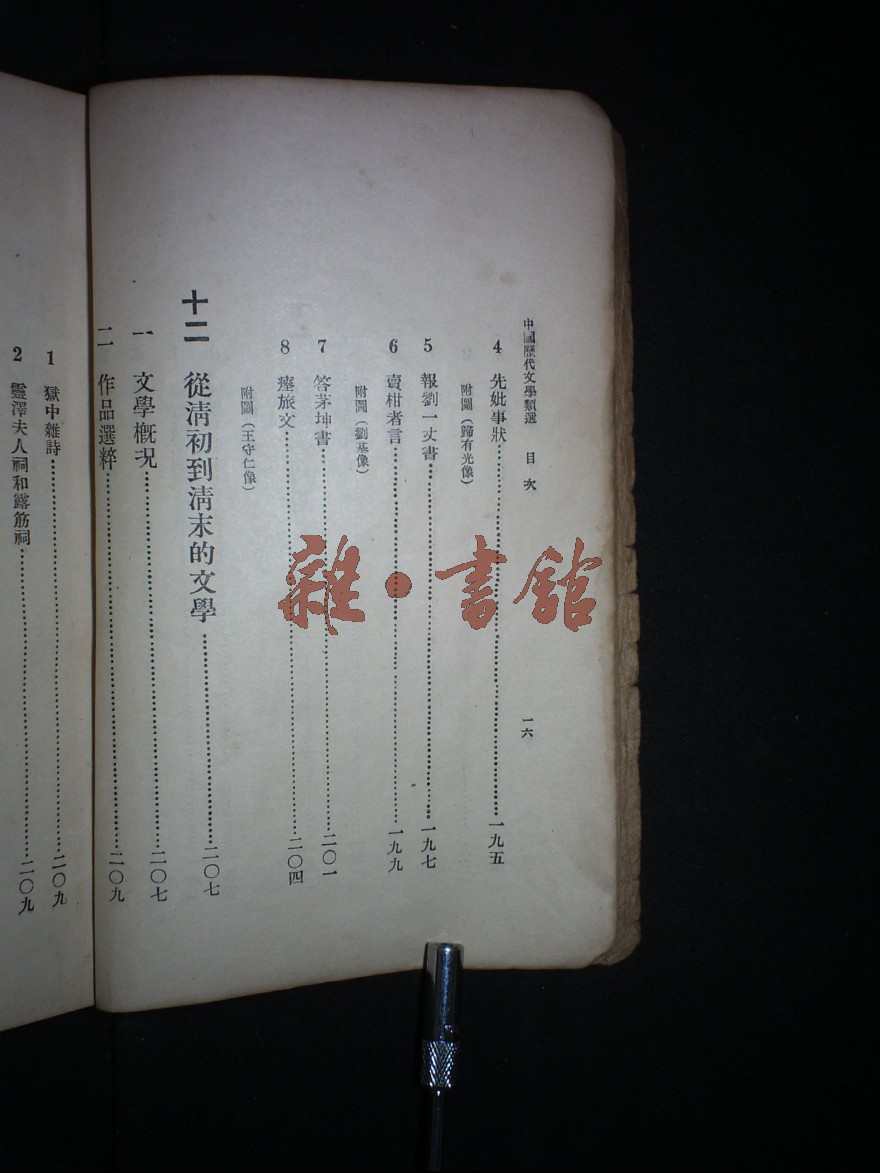 中國歷代文學類選　目次　一六
4 先妣事狀……一九五
附圖（歸有光像）
5 報劉一丈書……一九七
6 賣柑者言……一九九
附圖（劉基像）
7 答茅坤書……二〇一
8 瘞旅文……二〇四
附圖（王守仁像）
十二 從清初到清末的文學……二〇七
一 文學概況……二〇七
二 作品選粹……二〇九
1 獄中雜詩……二〇九
2 靈澤夫人祠和露筋祠……二〇九
雜·書館